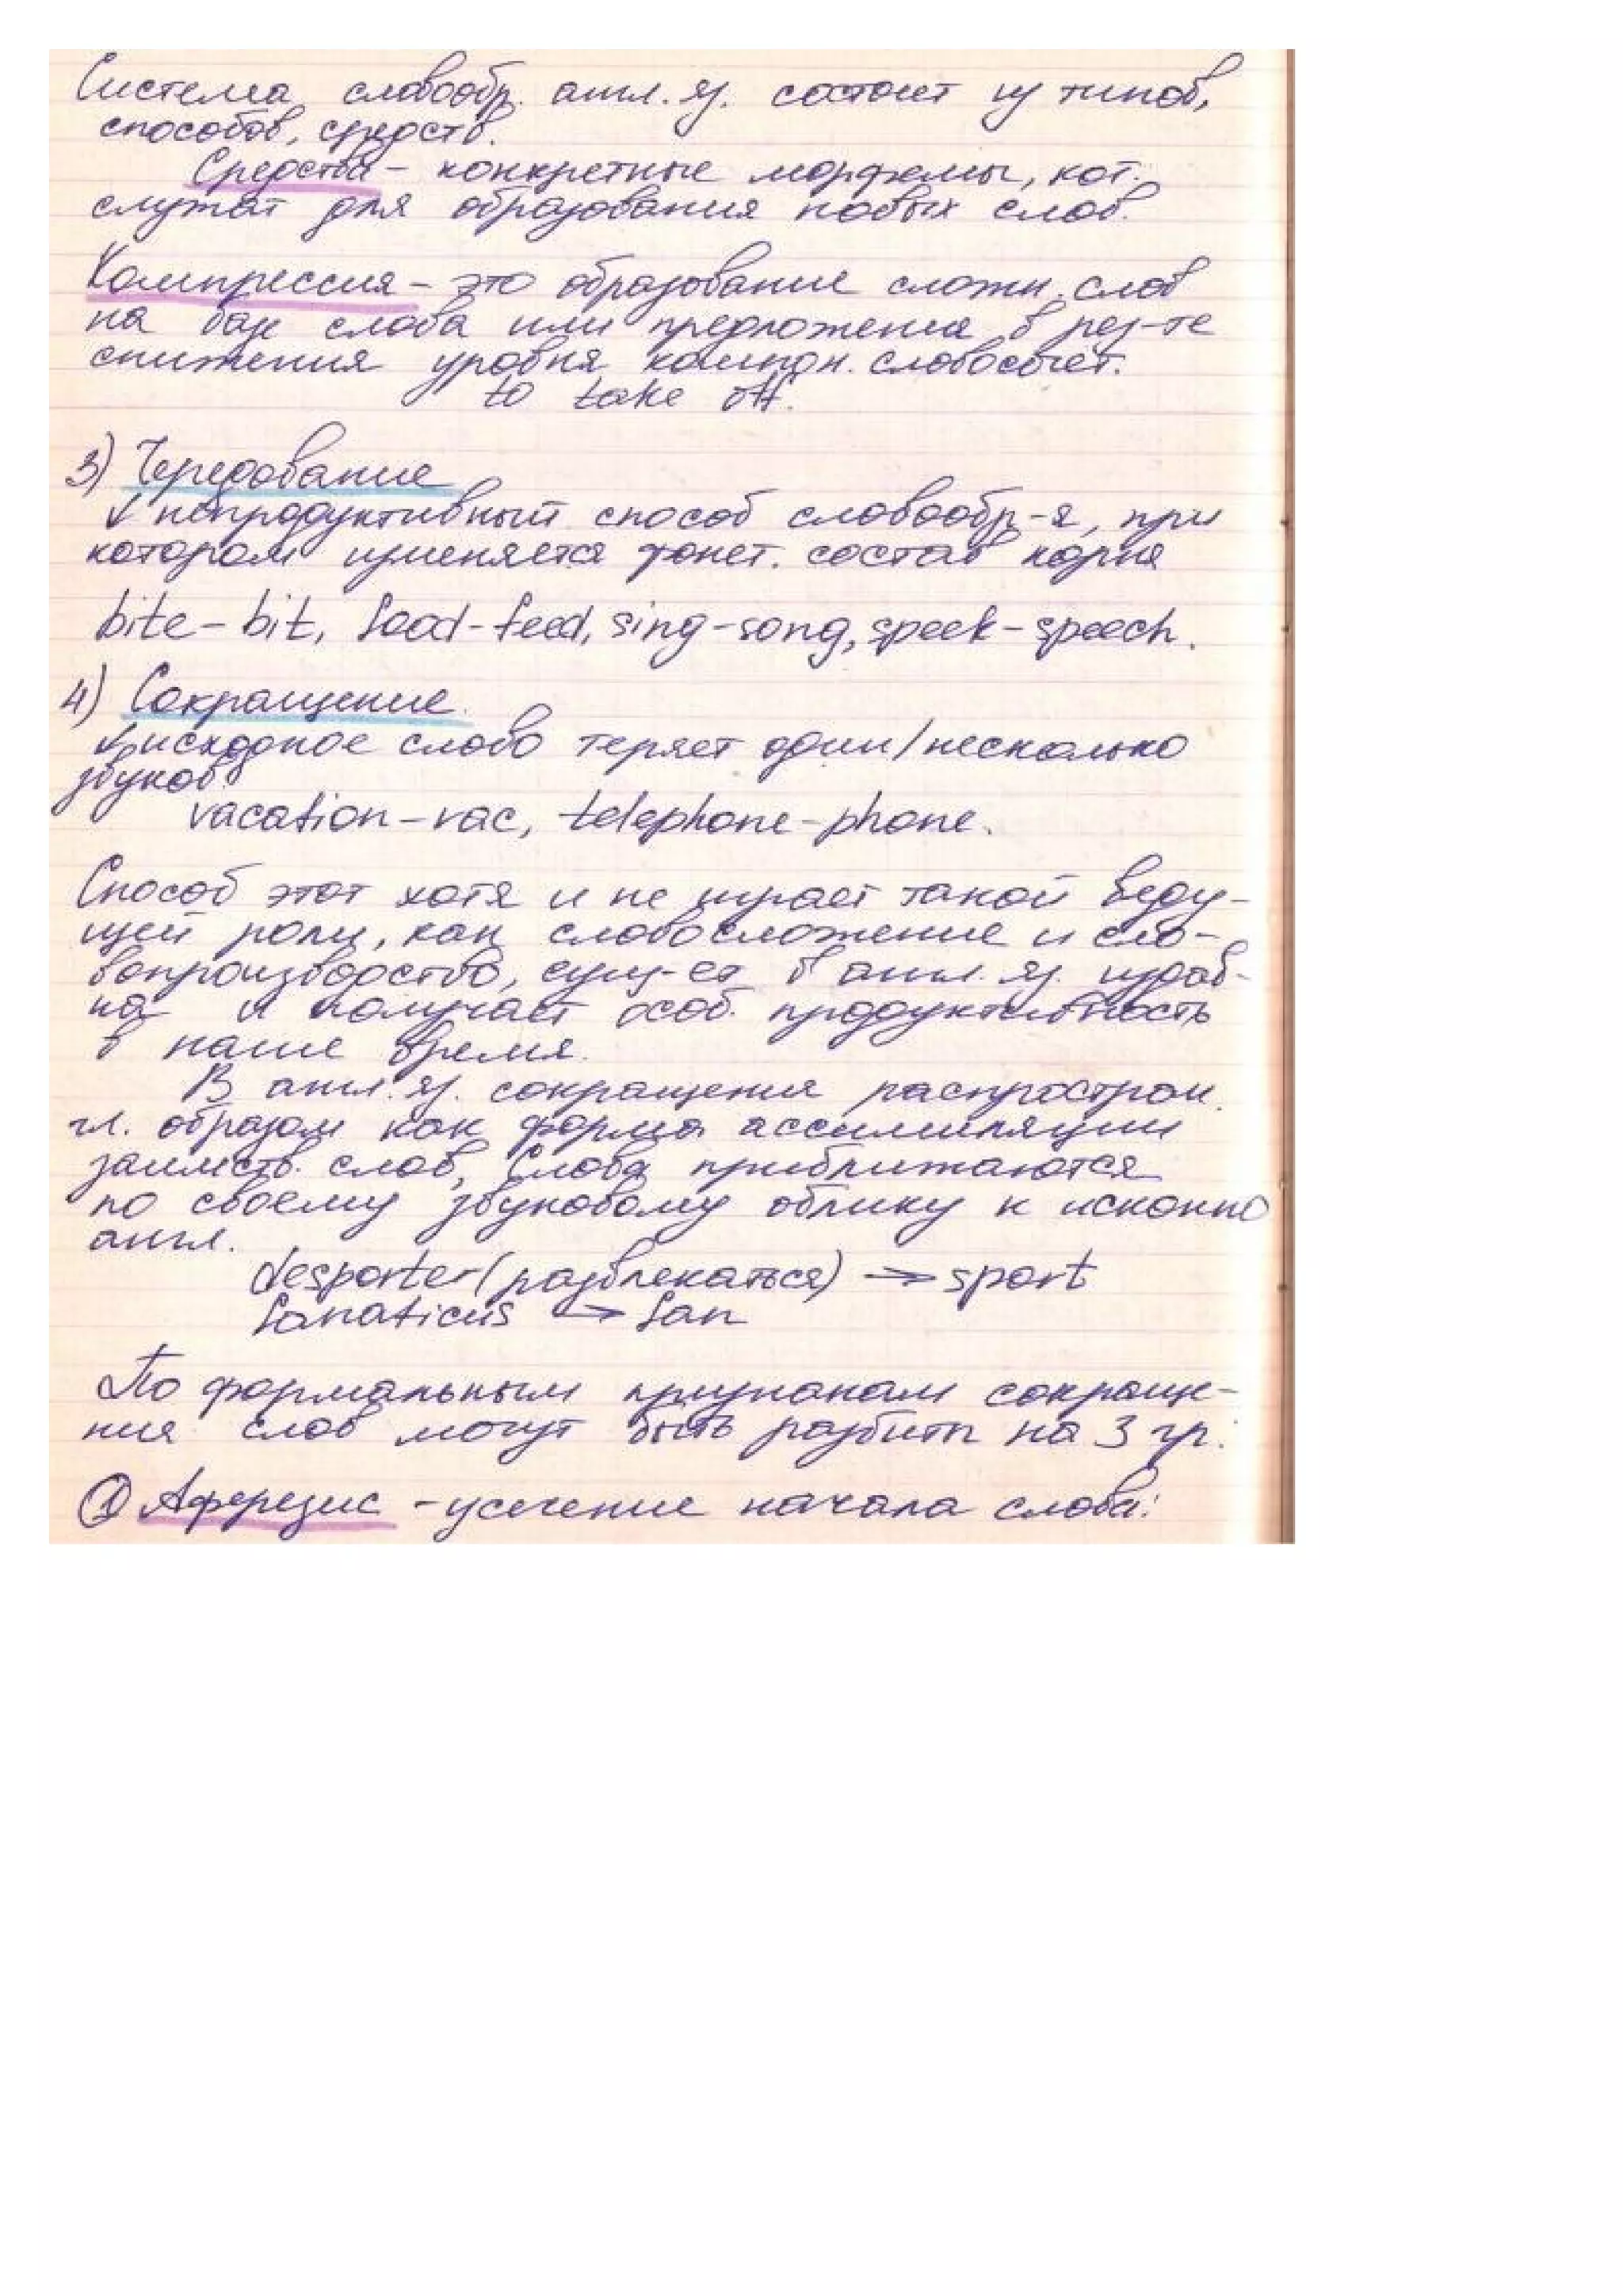 Система словообр. англ. яз. состоит из типов,
способов, средств.
Средства - конкретные морфемы, кот.
служат для образования новых слов.
Компрессия - это образование сложн. слов
на базе слова или предложения в рез-те
снижения уровня компон. словосочет.
to take off.
3) Чередование
непродуктивный способ словообр-я, при
котором изменяется фонет. состав корня
bite - bit, food - feed, sing - song, speek - speech.
4) Сокращение.
исходное слово теряет один/несколько
звуков.
vacation - vac, telephone - phone.
Способ этот хотя и не играет такой веду-
щей роли, как словосложение и сло-
вопроизводство, сущ-ет в англ. яз. издав-
на и получает особ. продуктивность
в наше время.
В англ. яз. сокращения распростран.
гл. образом как форма ассимиляции
заимств. слов, Слова приближаются
по своему звуковому облику к исконно
англ.
desporter (развлекаться) → sport
fanaticus → fan
По формальным признакам сокраще-
ния слов могут быть разбиты на 3 гр.:
① Аферезис - усечение начала слова: